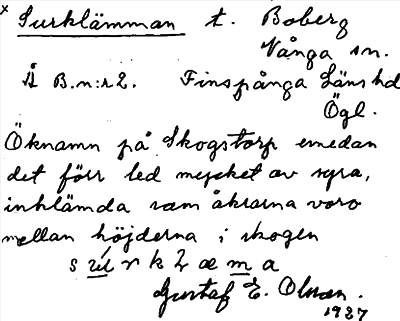 x Surklämman t. Boberg
Vånga sn.
Å B.n:r 2. Finspånga Läns hd
Ögl.
Öknamn på Skogstorp emedan
det förr led mycket av syra,
inklämda som åkrarna voro
mellan höjderna i skogen
Gustaf E. Olsson.
1927